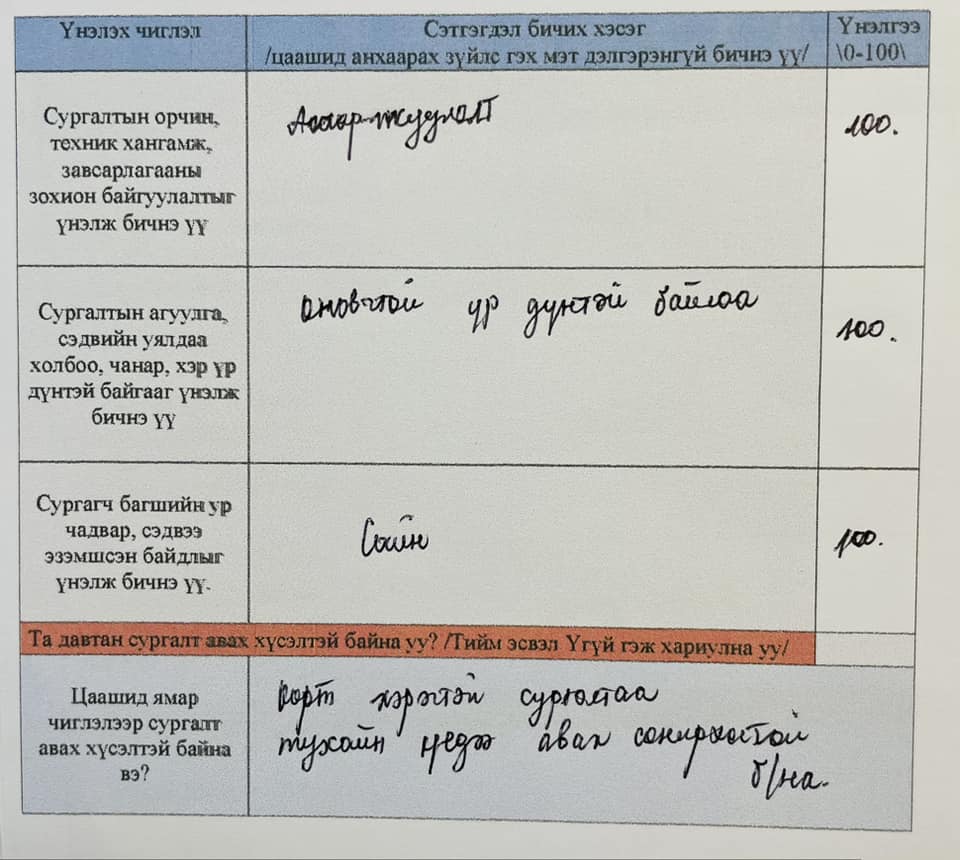 Үнэлэх чиглэл
Сэтгэгдэл бичих хэсэг
/цаашид анхаарах зүйлс гэх мэт дэлгэрэнгүй бичнэ үү/
Үнэлгээ
\0-100\
Сургалтын орчин,
техник хангамж,
завсарлагааны
зохион байгуулалтыг
үнэлж бичнэ үү
100.
Сургалтын агуулга,
сэдвийн уялдаа
холбоо, чанар, хэр үр
дүнтэй байгааг үнэлж
бичнэ үү
оновчтой үр дүнтэй байлаа
100.
Сургагч багшийн ур
чадвар, сэдвээ
эзэмшсэн байдлыг
үнэлж бичнэ үү.
Сайн
100.
Та давтан сургалт авах хүсэлтэй байна уу? /Тийм эсвэл Үгүй гэж хариулна уу/
Цаашид ямар
чиглэлээр сургалт
авах хүсэлтэй байна
вэ?
хэрэгтэй сургалтаа
тухайн үедээ авах сонирхолтой
б/на.